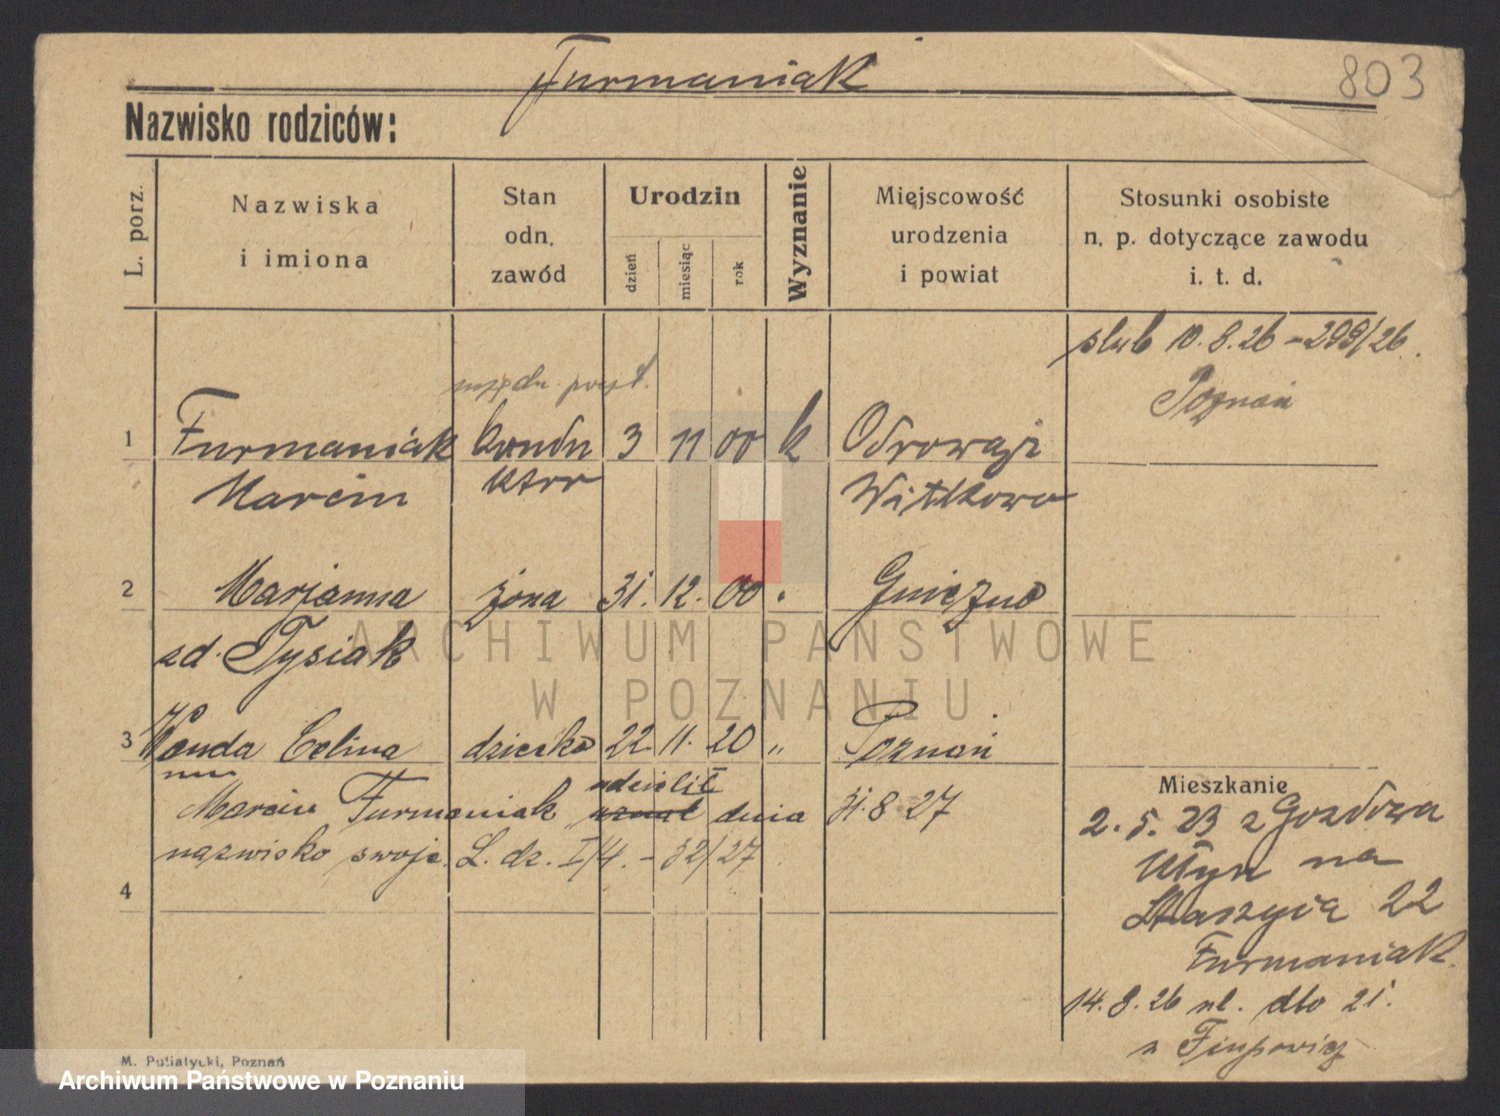 Furmaniak
803
Nazwisko rodziców:
L. porz.
Nazwiska
i imiona
Stan
odn.
zawód
Urodzin
dzień
miesiąc
rok
Wyznanie
Miejscowość
urodzenia
i powiat
Stosunki osobiste
n. p. dotyczące zawodu
i. t. d.
ślub 10.8.26 - 299/26.
Poznań
1 Furmaniak kondu 3 11 00 k Odrowąż
Marcin ktor Witkowo
2 Marjanna żona 31. 12. 00 Gniezno
zd. Tysiak
3 Wanda Celina dziecko 22 11. 20 " Poznań
Marcin Furmaniak udzielił uznał dnia 31.8.27
nazwisko swoje. L. dz. I/4. - 32/27
4
Mieszkanie
2.5.23 z Gozdowa
Młyn na
Staszyca 22
Furmaniak.
14.8.26 nl. dto 21.
M. Putiatycki, Poznań
ARCHIWUM PAŃSTWOWE
W POZNANIU
Archiwum Państwowe w Poznaniu